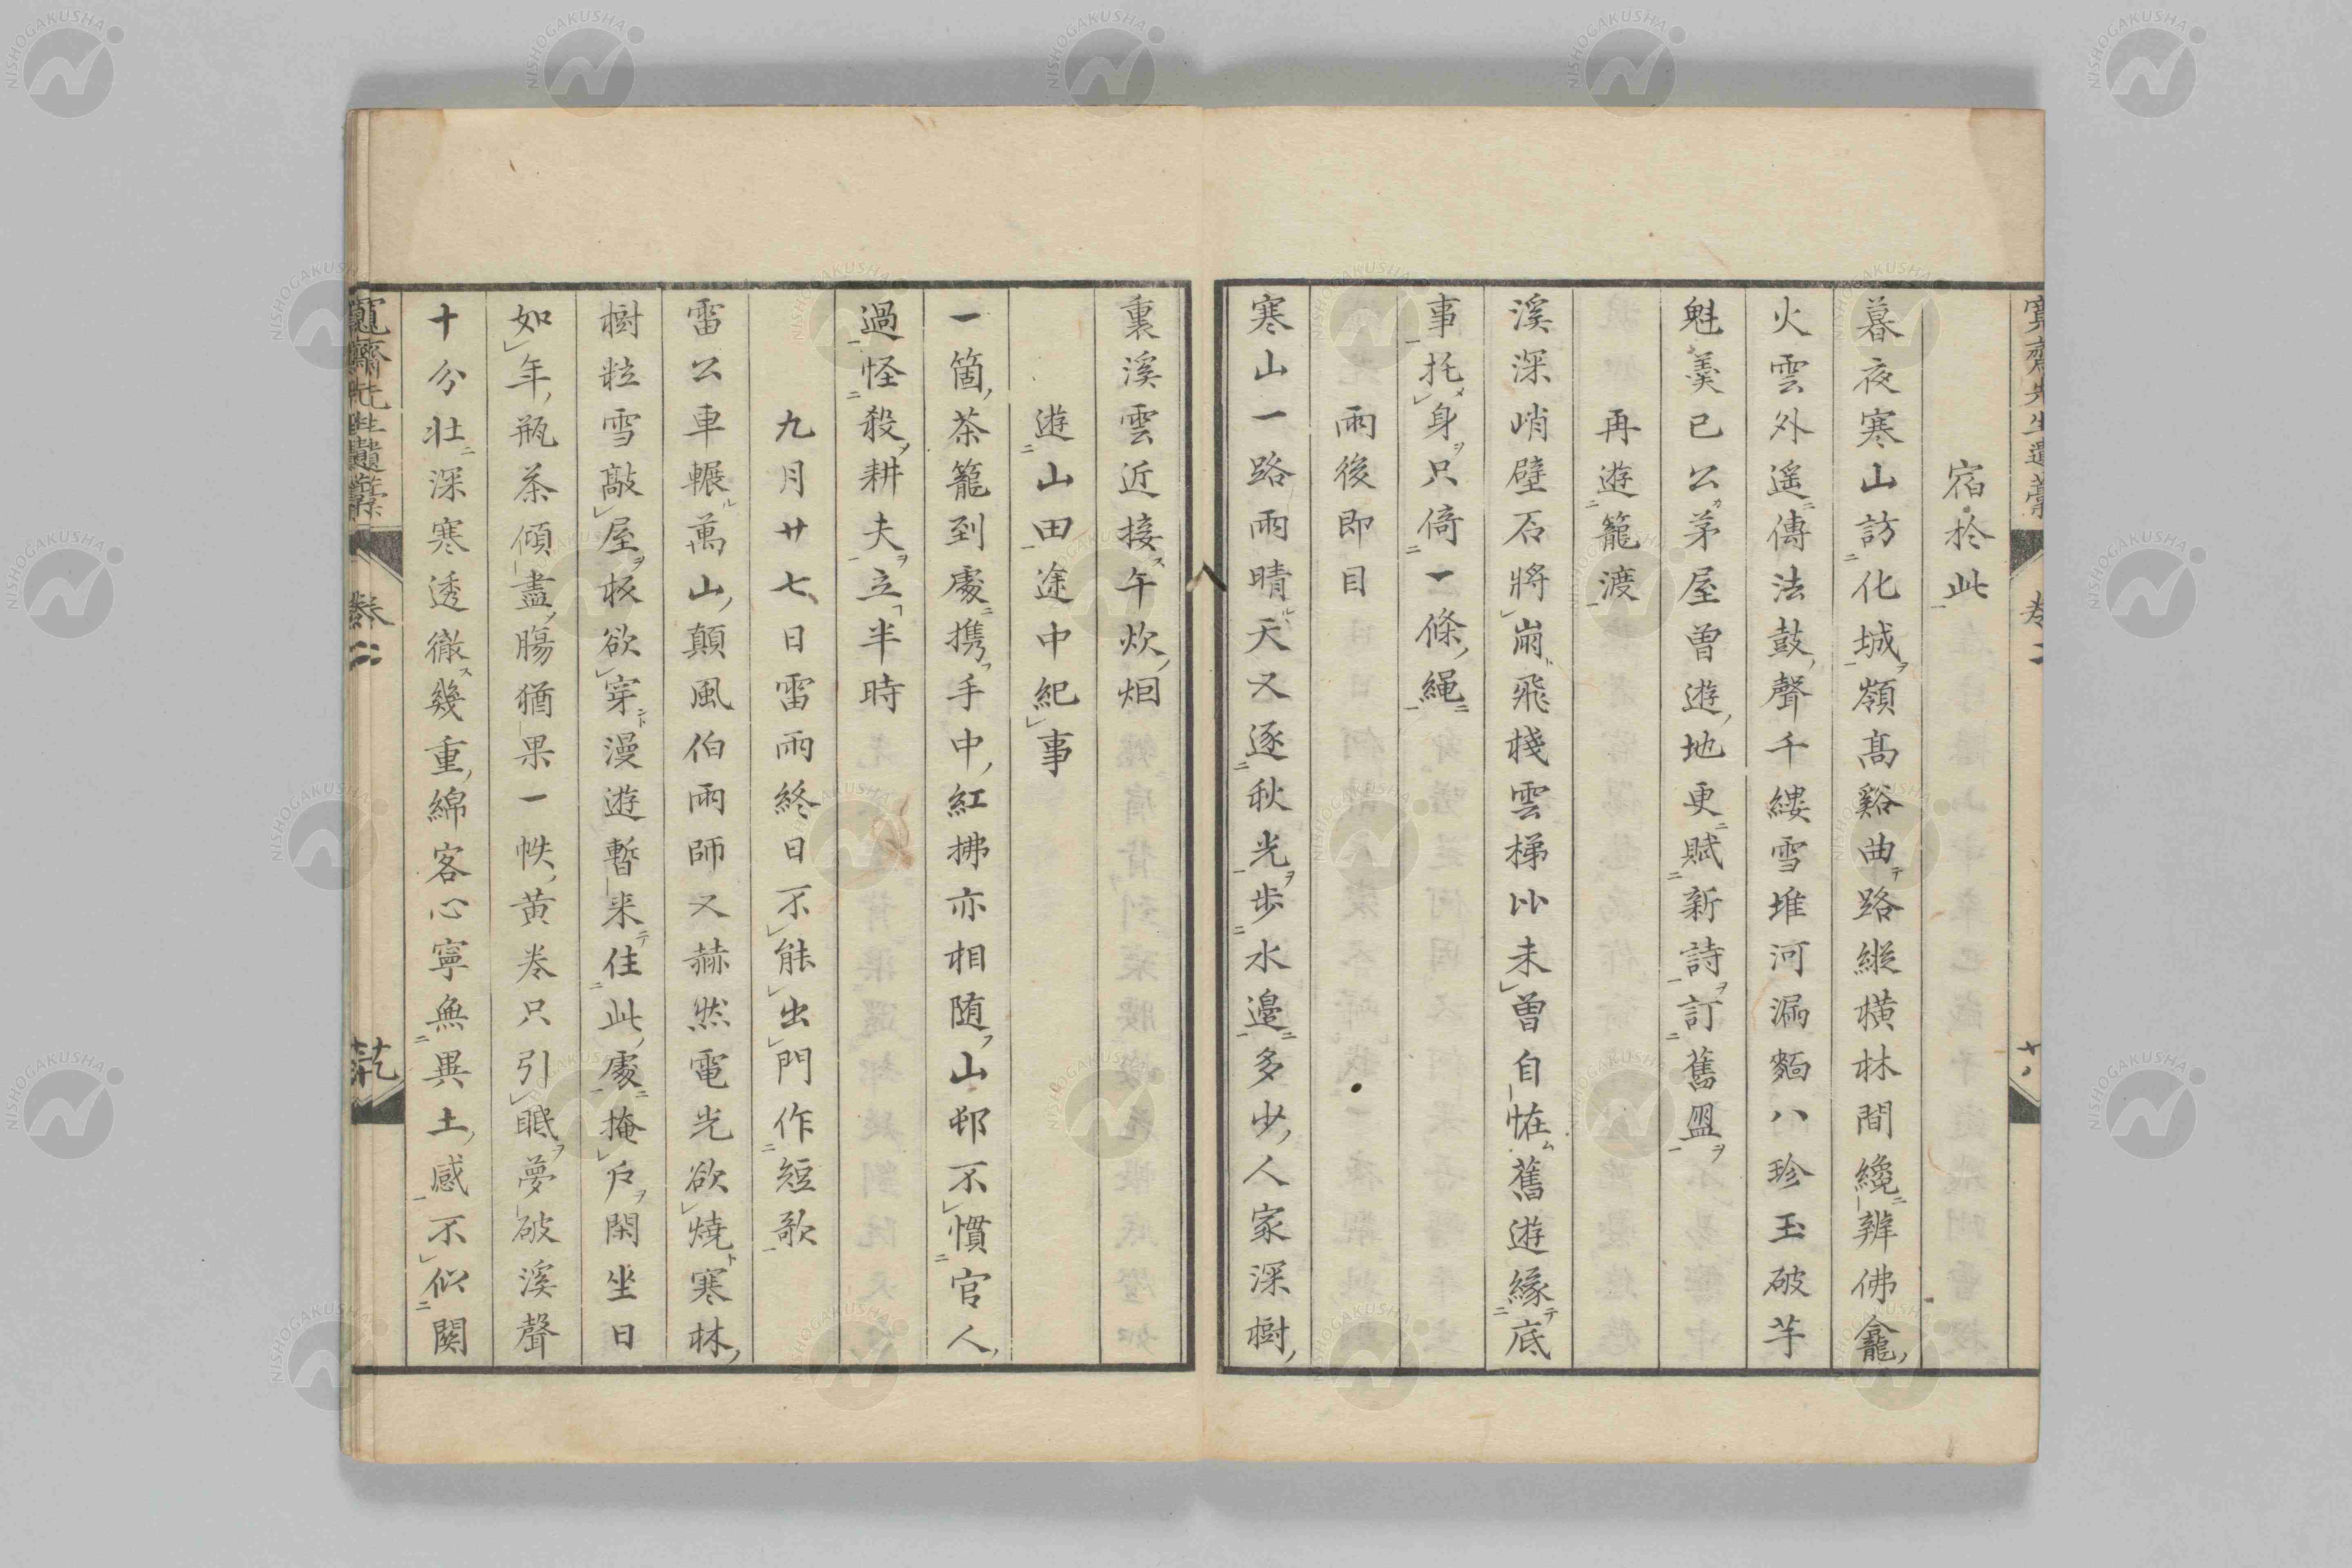 宿於此
暮夜寒山訪化城嶺高谿曲路縱橫林間纔辨佛龕
火雲外遙傳法鼓聲千縷雪堆河漏麵八珍玉破芋
魁羹已公茅屋曾遊地更賦新詩訂舊盟
再遊籠渡
溪深峭壁石將崩飛棧雲梯比未曾自怪舊遊緣底
事托身只倚一條繩
雨後即目
寒山一路雨晴天又逐秋光步水邊多少人家深樹
裏溪雲近接午炊烟
遊山田途中紀事
一箇茶籠到處携手中紅拂亦相随山邨不慣官人
過怪殺耕夫立半時
九月廿七日雷雨終日不能出門作短歌
雷公車輾萬山顛風伯雨師又赫然電光欲燒寒林
樹粒雪敲屋板欲穿漫遊暫来住此處掩戶閑坐日
如年瓶茶傾盡腸猶果一帙黄卷只引眠夢破溪聲
十分壮深寒透徹幾重綿客心寧無異土感不似関
寛齋先生遺藁 卷二 乾
NISHOGAKUSHA